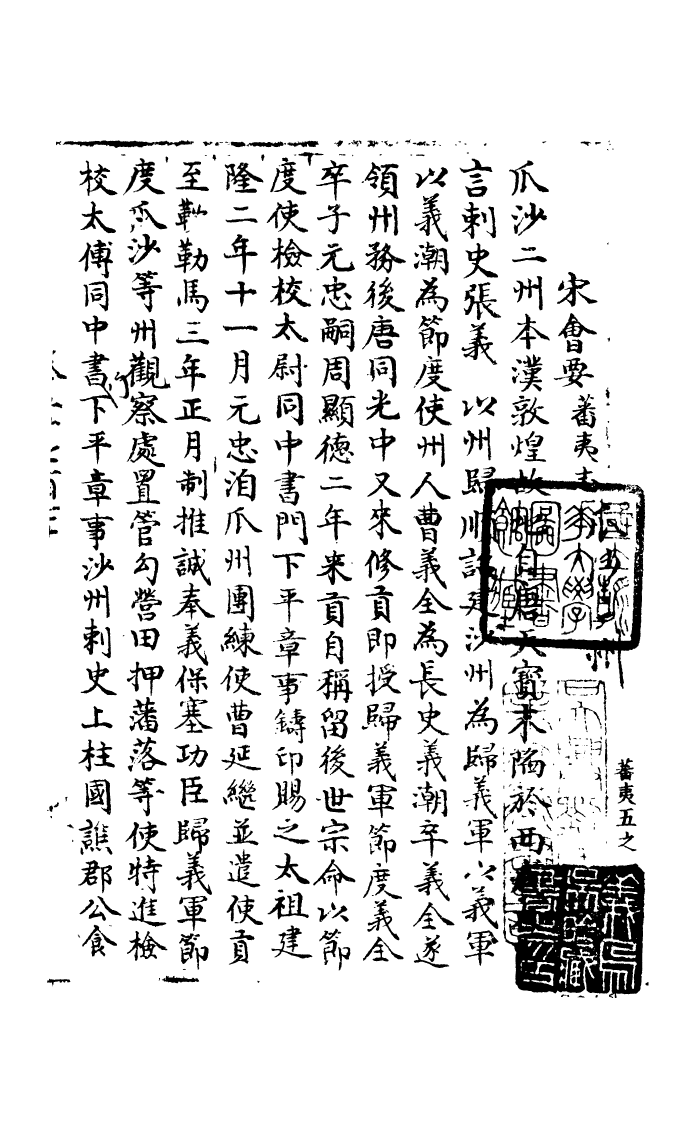 宋會要 蕃夷志 瓜沙二州
蕃夷五之
瓜沙二州本漢敦煌故地自唐天寶末陷於西
言刺史張義 以州歸順詔建沙州為歸義軍以義軍
以義潮為節度使州人曹義全為長史義潮卒義全遂
領州務後唐同光中又來修貢即授歸義軍節度義全
卒子元忠嗣周顯德二年來貢自稱留後世宗命以節
度使檢校太尉同中書門下平章事鑄印賜之太祖建
隆二年十一月元忠洎瓜州團練使曹延繼並遣使貢
至勒馬三年正月制推誠奉義保塞功臣歸義軍節
度瓜沙等州觀察處置管勾營田押蕃落等使特進檢
校太傅同中書下平章事沙州刺史上柱國譙郡公食